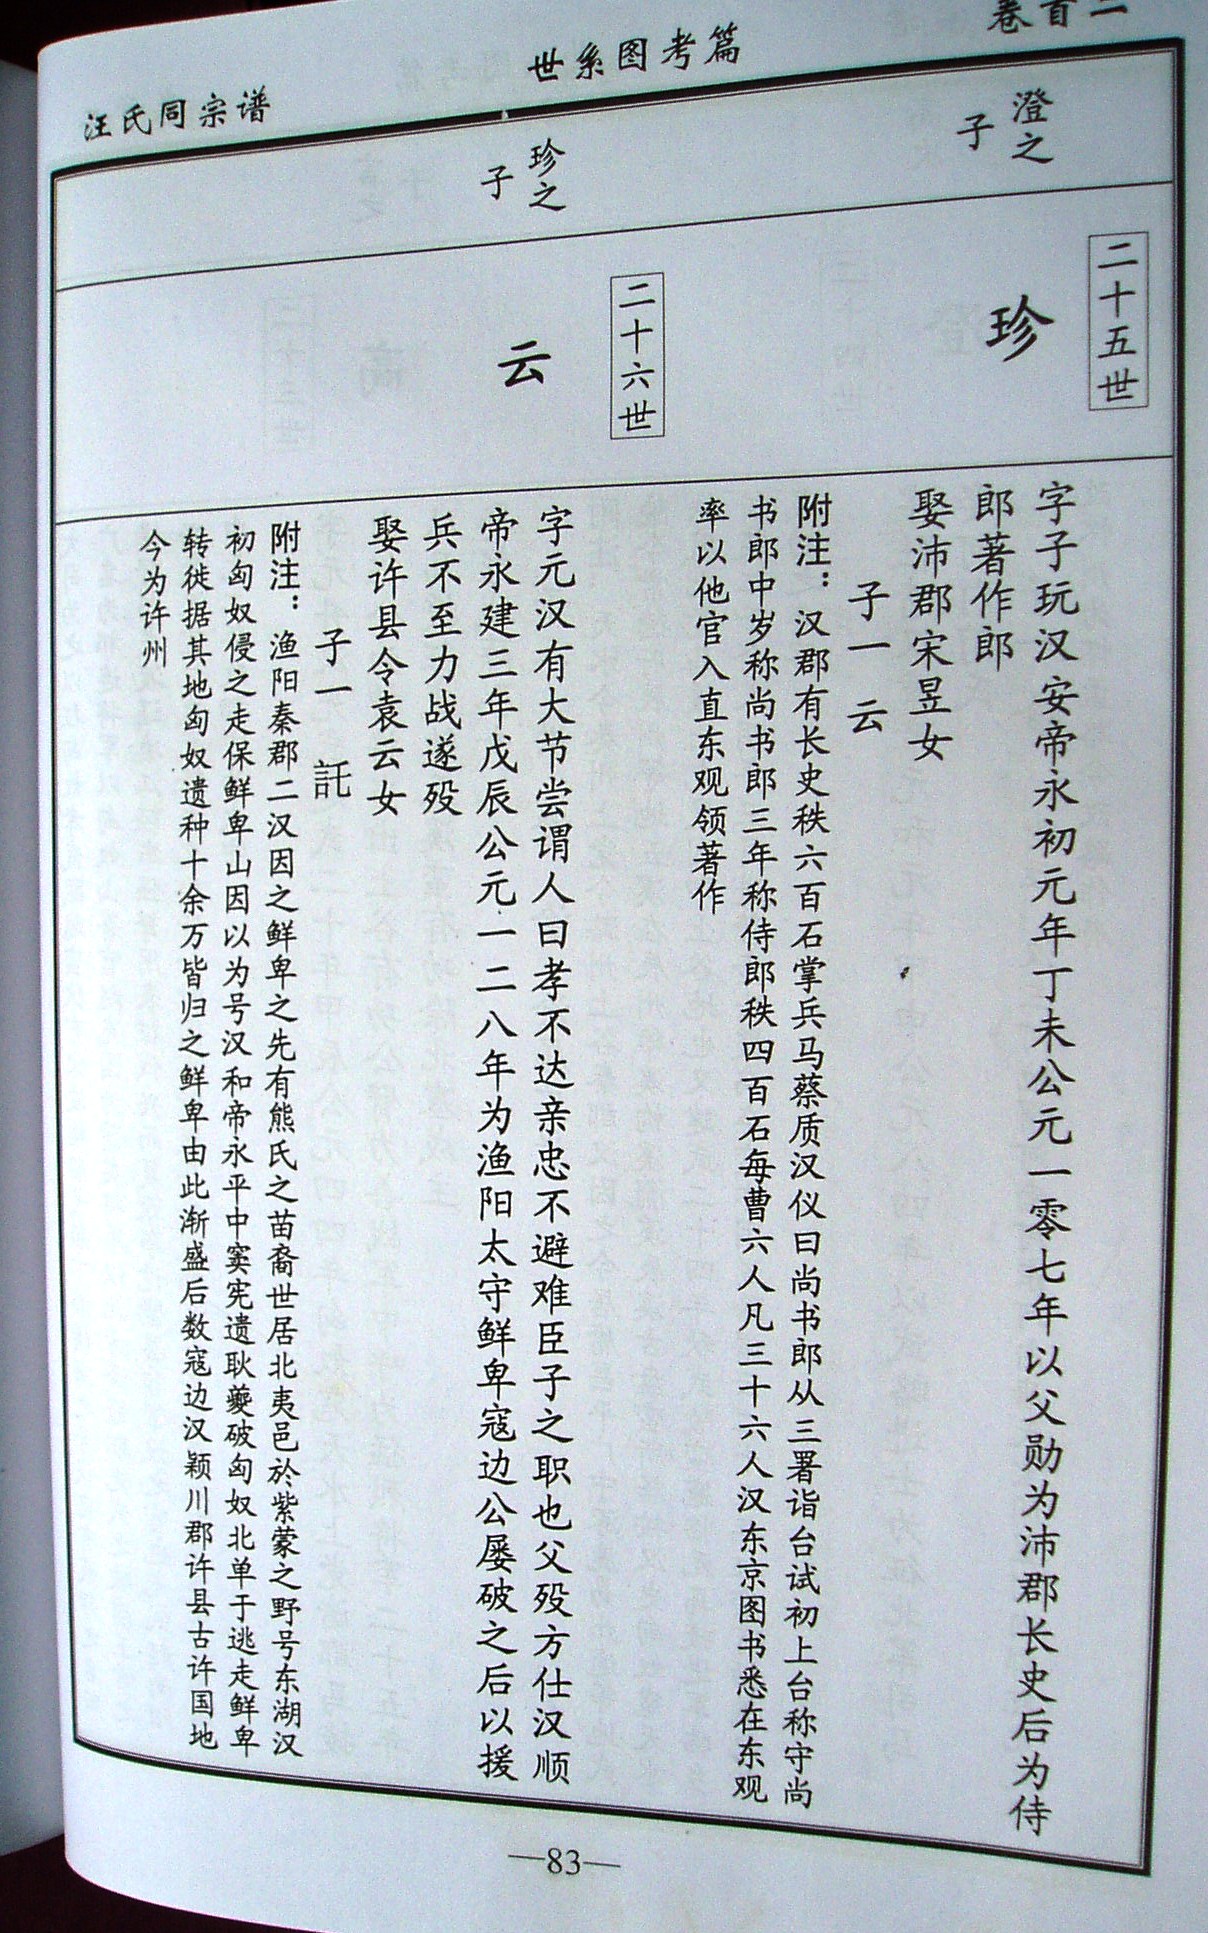 卷首二
世系图考篇
汪氏同宗谱
澄之
子
二十五世
珍
字子玩汉安帝永初元年丁未公元一零七年以父勋为沛郡长史后为侍
郎著作郎
娶沛郡宋昱女
子一 云
附注：汉郡有长史秩六百石掌兵马蔡质汉仪曰尚书郎从三署诣台试初上台称守尚
书郎中岁称尚书郎三年称侍郎秩四百石每曹六人凡三十六人汉东京图书悉在东观
率以他官入直东观领著作
珍之
子
二十六世
云
字元汉有大节尝谓人曰孝不达亲忠不避难臣子之职也父殁方仕汉顺
帝永建三年戊辰公元一二八年为渔阳太守鲜卑寇边公屡破之后以援
兵不至力战遂殁
娶许县令袁云女
子一 託
附注：渔阳秦郡二汉因之鲜卑之先有熊氏之苗裔世居北夷邑於紫蒙之野号东湖汉
初匈奴侵之走保鲜卑山因以为号汉和帝永平中窦宪遗耿夔破匈奴北单于逃走鲜卑
转徙据其地匈奴遗种十余万皆归之鲜卑由此渐盛后数寇边汉颖川郡许县古许国地
今为许州
—83—